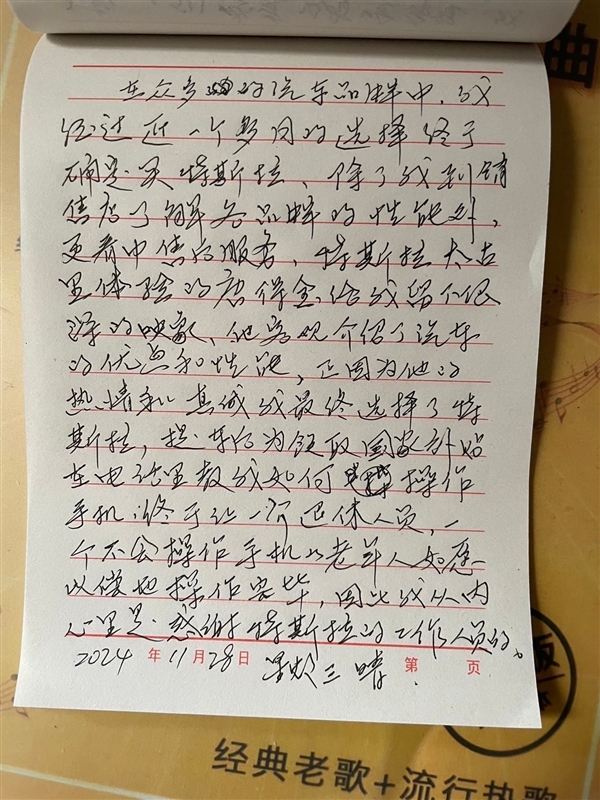 曲
在众多的汽车品牌中，我
经过近一个多月的选择终于
确定买特斯拉、除了我到销
售店了解各品牌的性能外，
更看中售后服务、特斯拉太古
里体验的唐得金给我留下很
深的映象、他客观介绍了汽车
的优点和性能，正因为他的
热情和真诚我最终选择了特
斯拉，提车后为领取国家补贴
在电话里教我如何操作
手机；终于让一个退休人员，一
个不会操作手机的老年人如愿
以偿地操作完毕，因此我从内
心里是感谢特斯拉的工作人员的。
2024年11月28日 星期三 晴 第 页
版
经典老歌+流行热歌